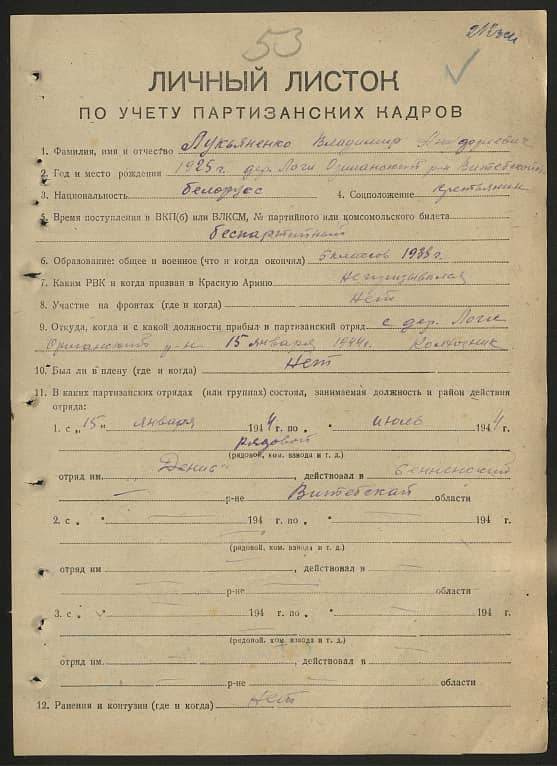 53
ЛИЧНЫЙ ЛИСТОК
ПО УЧЕТУ ПАРТИЗАНСКИХ КАДРОВ
1. Фамилия, имя и отчество Лукьяненко Владимир
2. Год и место рождения 1925 г. дер. Логи Оршанский р-н Витебской
3. Национальность белорус 4. Соцположение крестьянин
5. Время поступления в ВКП(б) или ВЛКСМ, № партийного или комсомольского билета
беспартийный
6. Образование: общее и военное (что и когда окончил) 5 классов 1938 г.
7. Каким РВК и когда призван в Красную Армию Непризывался
8. Участие на фронтах (где и когда) Нет
9. Откуда, когда и с какой должности прибыл в партизанский отряд с дер. Логи
Оршанского р-н. 15 января 1944 г. Колхозник
10. Был ли в плену (где и когда) Нет
11. В каких партизанских отрядах (или группах) состоял, занимаемая должность и район действия
отряда:
1. с „15" января 1944 г. по „ " июль 1944 г.
рядовой
(рядовой, ком. взвода и т. д.)
отряд им „Денис", действовал в Сенненский
р-не Витебской области
2. с „ " 194 г. по „ " 194 г.
(рядовой, ком. взвода и т. д.)
отряд им , действовал в
р-не области
3. с „ " 194 г. по „ " 194 г.
(рядовой, ком. взвода и т. д.)
отряд им. , действовал в
р-не области
12. Ранения и контузии (где и когда) Нет